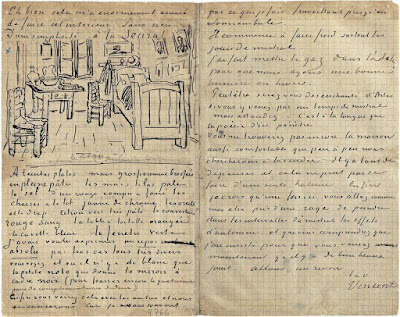 Eh bien cela m'a enormement amusé
de faire cet interieur sans rien
D'une simplicité à la Seurat
A teintes plates mais grossierement brossées
en pleine pâte les murs lilas pale
le sol d'un rouge rompu & fané
les chaises & le lit jaune de chrome les oreillers
et le drap citron vert très pale la couverture
rouge sang la table à toilette orangée
la cuvette bleue la fenêtre verte
J'aurais voulu exprimer un repos
absolu par tous ces tons très divers
vous voyez et où il n'y a de blanc que
la petite note que donne le miroir à
cadre noir (pour fourrer encore la quatrième
paire de complementaires dedans)
Enfin vous verrez cela avec les autres et nous
en causerons car je ne sais souvent
pas ce que je fais travaillant presqu'en
somnambule
Il commence à faire froid surtout les
jours de mistral
J'ai fait mettre le gaz dans l'atelier
pour que nous ayons une bonne
lumière en hiver
Peutêtre serez vous desenchanté d'Arles
si vous y venez par un temps de mistral
mais attendez C'est à la longue que
la poésie d'ici pénètre
Vous ne trouverez pas encore la maison
aussi confortable que peu à peu nous
chercherons à la rendre Il y a tant de
dépenses et cela ne peut pas se
faire d'une seule haleine Enfin
je crois qu'une fois ici vous allez comme
moi être pris d'une rage de peindre
dans les intervalles du mistral les effets
d'automne et que vous comprendrez que
j'aie insisté pour que vous veniez
maintenant qu'il y a de bien beaux
jours allons au revoir
t à v
Vincent